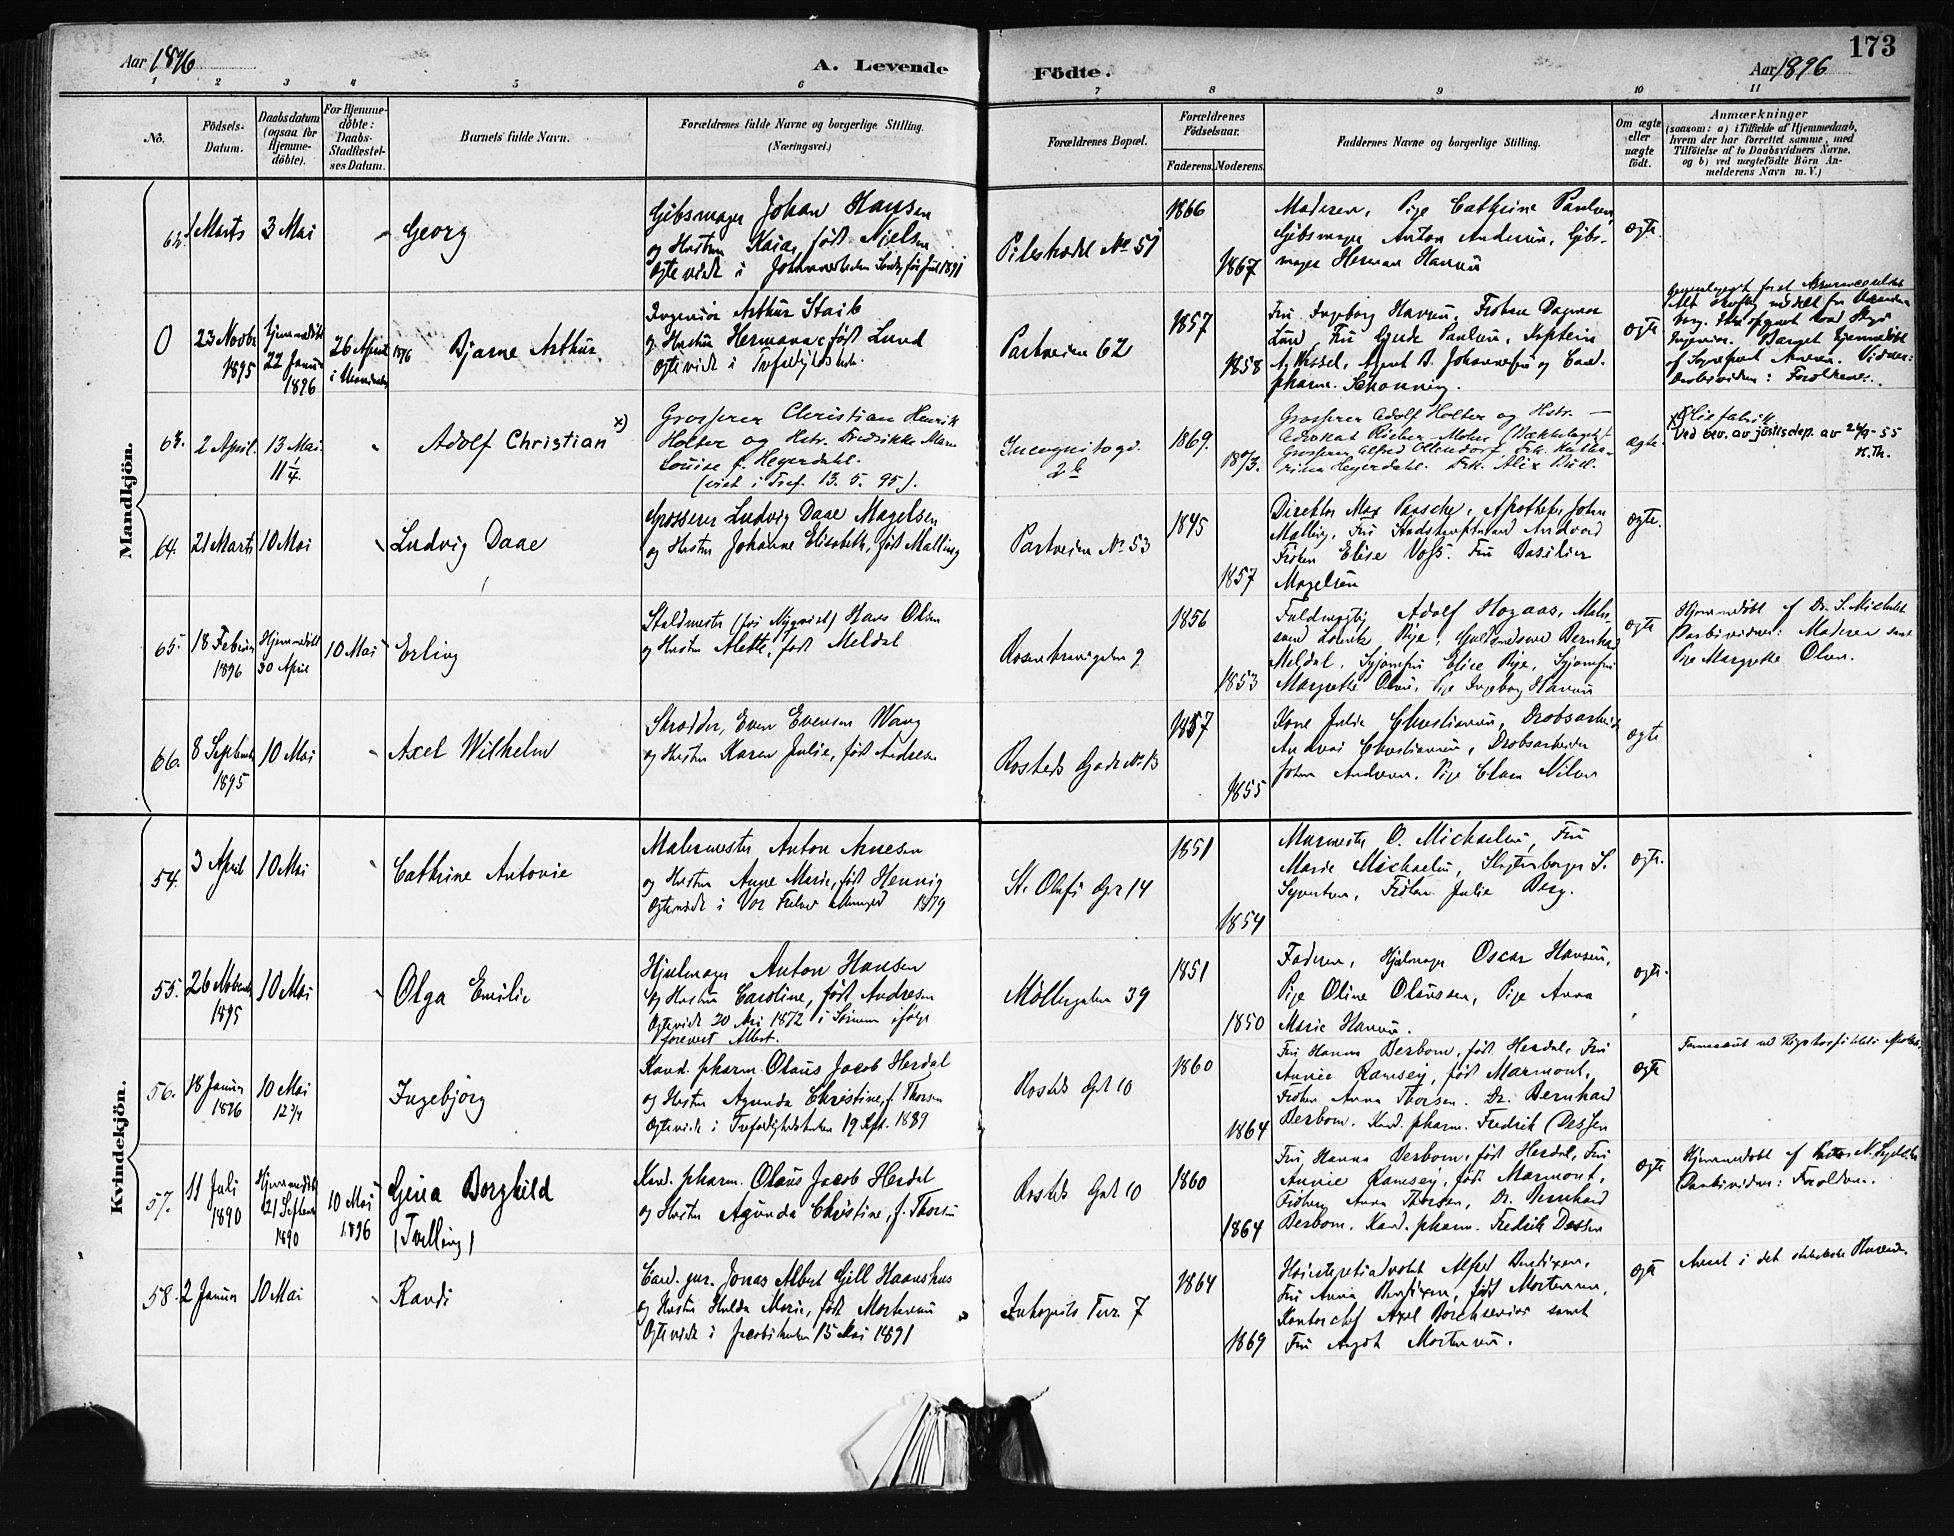 Aar 1896
A. Levende
Födte.
Aar 1896
173
1 2 3 4 5 6 7 8 9 10 11
No.
Födsels-
Datum.
Daabsdatum
(ogsaa for
Hjemme-
döbte).
For Hjemme-
döbte:
Daabs-
Stadfæstel-
ses Datum.
Barnets fulde Navn.
Forældrenes fulde Navne og borgerlige Stilling.
(Næringsvei.)
Forældrenes Bopæl.
Forældrenes
Födselsaar.
Faderens.
Moderens.
Faddernes Navne og borgerlige Stilling.
Om ægte
eller
uægte
födt.
Anmærkninger
(saasom: a) i Tilfælde af Hjemmedaab,
hvem der har forrettet samme, med
Tilföielse af to Daabsvidners Navne,
og b) ved uægtefödte Börn An-
melderens Navn m. V.)
Mandkjön.
62. 1 Marts
3 Mai
Georg
Gibsmager Johan Hansen
og Hustru Kaia, født Nielsen
Pilestrædet No 51
1866
1867
Moderen, Pige Cathrine Paulsen
Gibsmager Anton Andersen, Gibs-
mager Herman Hansen
ægte.
0
23 Novbr
1895
Hjemmedøbt
22 Januar
1896
26 April 1896
Bjarne Arthur
Ingeniør Arthur Staib
og Hustru Hermana, født Lund
Ægteviede i Trefoldighedskirke
Parkveien 62
1857
1858
Fru Ingeborg Hansen, Frøken Dagmar
Lund, Fru Gjerde Paulsen, Kaptein
pharm. Schonning.
ægte
63. 2 April.
13 Mai
11 1/4.
Adolf Christian x)
Grosserer Christian Henrik
Holter og Hstr. Fredrikke Marie
Louise f. Heyerdahl.
(viet i Tref. 13. 5. 95).
Incognitogd.
2 b
1869.
1873.
Grosserer Adolf Holter og Hstr. —
Grosserer Alfred Ollendorf, Frk. Katha-
rina Heyerdahl. Frk. Alix Buel.
ægte
x) Ved bev. av justisdep. av 24/9-55
N.Th.
64. 21 Marts
10 Mai
Ludvig Daae
Grosserer Ludvig Daae Magelsen
og Hustru Johanne Elisabeth, født Malling
Parkveien No 53
1845
1857
Direktør Max Paasche, Apotheker John
Malling, Fru
Frøken Elise Voss. Fru Basilier
Magelsen
ægte.
65. 18 Februar
1896
Hjemmedøbt
30 April
10 Mai
Erling
Staldmester Hans Olsen
og Hustru Alette, født Meldal
Rosenkrantzgaden 9
1856
1853
Fuldmægtig Adolf Hogaas, Maler-
svend Lorentz Bye, Guldsmedsvend Bernhard
Meldal, Syjomfru Elise Bye, Syjomfru
Margrethe Olsen, Pige Ingeborg Hansen
ægte
Hjemmedøbt af Dr. S. Michelet
Daabsvidner: Moderen samt
Pige Margrethe Olsen.
66. 8 Septembr
1895
10 Mai
Axel Wilhelm
Skrædder, Even Evensen Wang
og Hustru Karen Julie, født Andersen
Rosteds Gade No 13
1857
1855
Kone Julie Christiansen,
Andreas Christiansen,
John Andersen. Pige Clara Nilsen
ægte
Kvindekjön.
54. 3 April
10 Mai
Cathrine Antonie
Malermester Anton Arnesen
og Hustru Anne Marie, født Hennig
Ægteviede i Vor Frelser 1879
St. Olafs Gd 14
1851
1854
Murmester O. Michaelsen, Fru
Marie Michaelsen, S.
Syvertsen, Frøken Julie Berg.
ægte.
55. 26 Novemb
1895
10 Mai
Olga Emilie
Hjulmager Anton Hansen
og Hustru Caroline, født Andresen
Ægteviede 20 Mai 1872 i Sørum ifølge
forevist Attest.
Møllergaden 39
1851
1850
Faderen, Hjulmager Oscar Hansen,
Pige Oline Olaussen, Pige Anna
Marie Hansen.
ægte.
56. 18 Januar
1896
10 Mai
12 3/4
Ingebjørg
Kand. pharm. Olaus Jacob Herdal
og Hustru Agunda Christine, f. Thorsen
Ægteviede i Trefoldighedskirken 19 Sept. 1889
Rosteds Gd 10
1860
1864
Fru Hanna Berbom, født Herdal, Fru
Annie Ramsey, født Marmont,
Frøken Anna Thorsen. Dr. Bernhard
Berbom. Kand. pharm. Fredrik Dessen
ægte
57. 11 Juli
1890
Hjemmedøbt
21 Septembr
1890
10 Mai
1896
Gina Borghild
(Tvilling)
Kand. pharm. Olaus Jacob Herdal
og Hustru Agunda Christine, f. Thorsen
Rosteds Gade 10
1860
1864
Fru Hanna Berbom, født Herdal, Fru
Annie Ramsey, født Marmont,
Frøken Anna Thorsen, Dr. Bernhard
Berbom. Kand. pharm. Fredrik Dessen
ægte
Hjemmedøbt af
Daabsvidner: Forældrene.
58. 2 Januar
10 Mai
Randi
Cand. jur. Jonas Albert Gjell Haanshus
og Hustru Hulda Marie, født Mortensen
Ægteviede i Jacobskirken 15 Mai 1891
Inkognito Terr. 7
1864
1869
Høiesteretsadvokat Alfred Bendixen,
Fru Anna Bendixen, født Mortensen,
Kontorchef Axel Borchsenius samt
Fru Mortensen.
ægte
Ansat i det statistiske